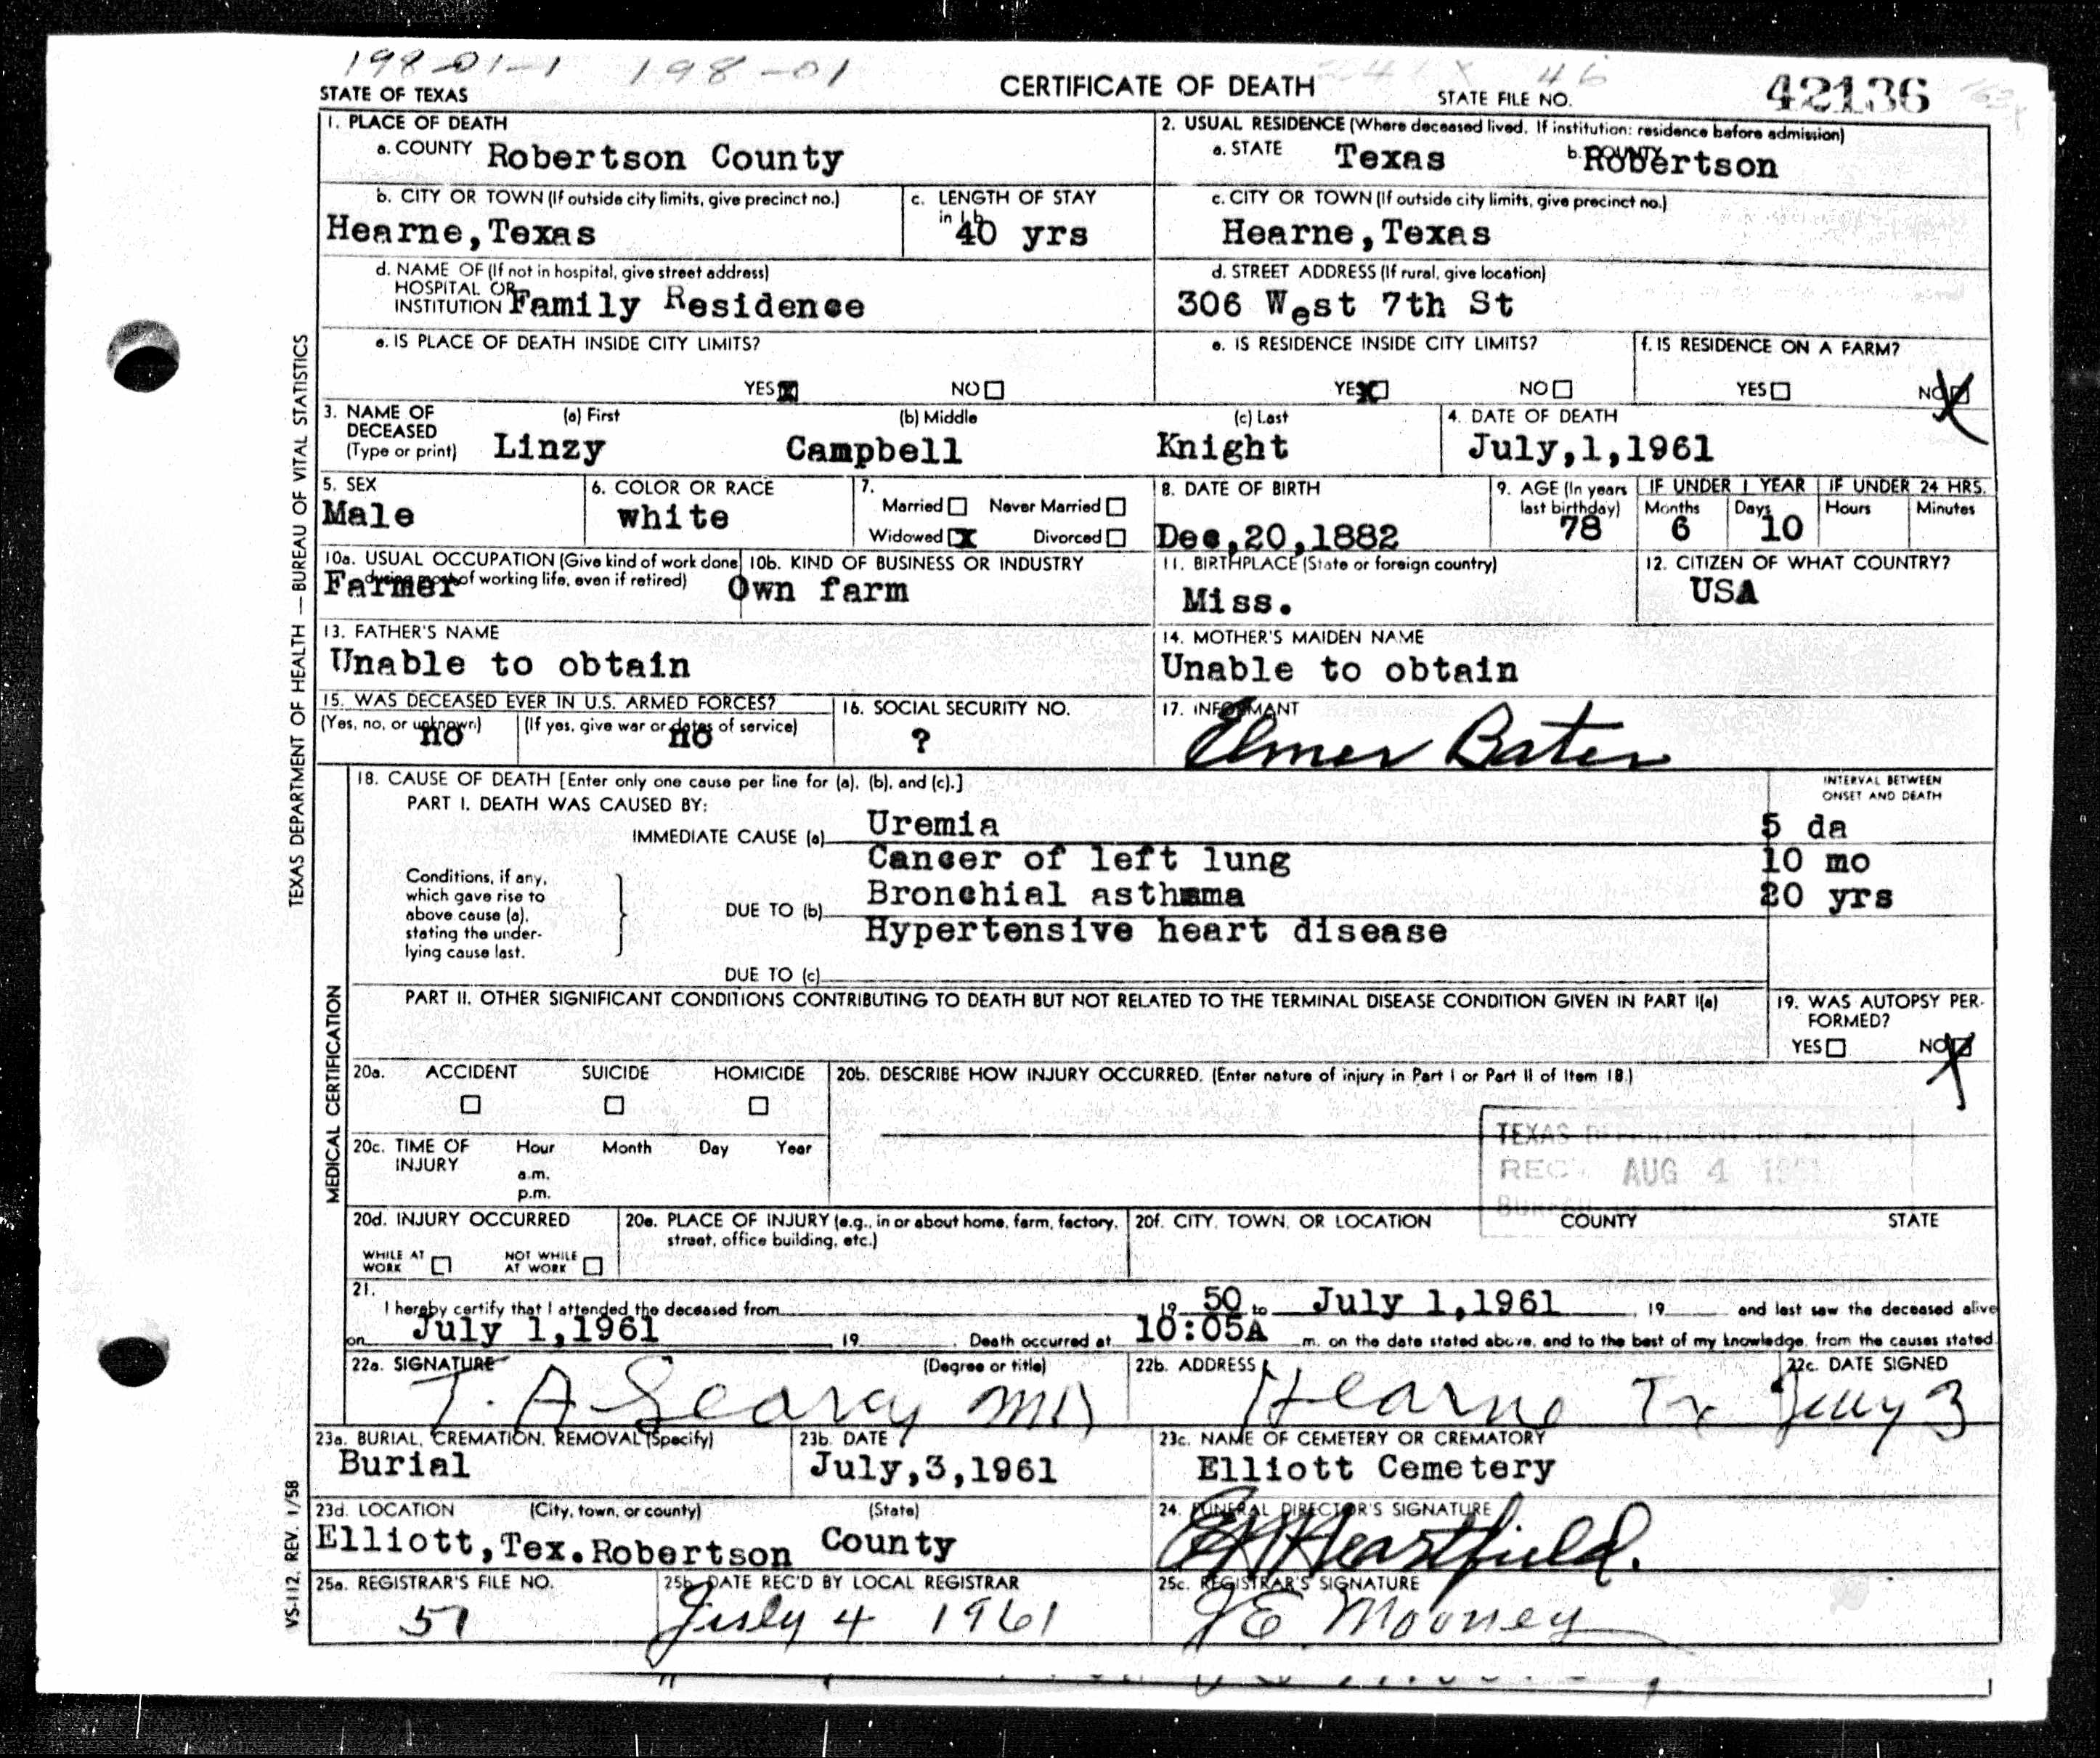 198-01-1 198-01
STATE OF TEXAS
CERTIFICATE OF DEATH
STATE FILE NO. 42136
1. PLACE OF DEATH
a. COUNTY Robertson County
2. USUAL RESIDENCE (Where deceased lived. If institution: residence before admission)
a. STATE Texas b. COUNTY Robertson
b. CITY OR TOWN (If outside city limits, give precinct no.)
Hearne,Texas
c. LENGTH OF STAY
in 1b
40 yrs
c. CITY OR TOWN (If outside city limits, give precinct no.)
Hearne,Texas
d. NAME OF (If not in hospital, give street address)
HOSPITAL OR
INSTITUTION Family Residence
d. STREET ADDRESS (If rural, give location)
306 West 7th St
e. IS PLACE OF DEATH INSIDE CITY LIMITS?
YES X NO
e. IS RESIDENCE INSIDE CITY LIMITS?
YES X NO
f. IS RESIDENCE ON A FARM?
YES NO X
3. NAME OF DECEASED (Type or print)
(a) First (b) Middle (c) Last
Linzy Campbell Knight
4. DATE OF DEATH
July,1,1961
5. SEX
Male
6. COLOR OR RACE
white
7.
Married Never Married
Widowed X Divorced
8. DATE OF BIRTH
Dec,20,1882
9. AGE (In years last birthday)
78
IF UNDER 1 YEAR IF UNDER 24 HRS.
Months Days Hours Minutes
6 10
10a. USUAL OCCUPATION (Give kind of work done during most of working life, even if retired)
Farmer
10b. KIND OF BUSINESS OR INDUSTRY
Own farm
11. BIRTHPLACE (State or foreign country)
Miss.
12. CITIZEN OF WHAT COUNTRY?
USA
13. FATHER'S NAME
Unable to obtain
14. MOTHER'S MAIDEN NAME
Unable to obtain
15. WAS DECEASED EVER IN U.S. ARMED FORCES?
(Yes, no, or unknown) (If yes, give war or dates of service)
no no
16. SOCIAL SECURITY NO.
?
17. INFORMANT
Elmer
18. CAUSE OF DEATH [Enter only one cause per line for (a), (b), and (c).]
INTERVAL BETWEEN
ONSET AND DEATH
PART I. DEATH WAS CAUSED BY:
IMMEDIATE CAUSE (a) Uremia 5 da
Cancer of left lung 10 mo
Conditions, if any, which gave rise to above cause (a), stating the under-lying cause last.
DUE TO (b) Bronchial asthmma 20 yrs
Hypertensive heart disease
DUE TO (c)
PART II. OTHER SIGNIFICANT CONDITIONS CONTRIBUTING TO DEATH BUT NOT RELATED TO THE TERMINAL DISEASE CONDITION GIVEN IN PART I(a)
19. WAS AUTOPSY PER-
FORMED?
YES NO X
20a. ACCIDENT SUICIDE HOMICIDE
20b. DESCRIBE HOW INJURY OCCURRED. (Enter nature of injury in Part I or Part II of Item 18.)
TEXAS DEPARTMENT OF HEALTH
REC'D AUG 4 1961
BUREAU
20c. TIME OF INJURY
Hour Month Day Year
a.m.
p.m.
20d. INJURY OCCURRED
WHILE AT WORK NOT WHILE AT WORK
20e. PLACE OF INJURY (e.g., in or about home, farm, factory, street, office building, etc.)
20f. CITY, TOWN, OR LOCATION COUNTY STATE
21.
I hereby certify that I attended the deceased from 19 50 to July 1,1961, 19 and last saw the deceased alive
on July 1,1961 19 . Death occurred at 10:05A m. on the date stated above, and to the best of my knowledge, from the causes stated.
22a. SIGNATURE (Degree or title)
T. A Searcy MD
22b. ADDRESS
Hearne Tx
22c. DATE SIGNED
July 3
23a. BURIAL, CREMATION, REMOVAL (Specify)
Burial
23b. DATE
July,3,1961
23c. NAME OF CEMETERY OR CREMATORY
Elliott Cemetery
23d. LOCATION (City, town, or county) (State)
Elliott,Tex.Robertson County
24. FUNERAL DIRECTOR'S SIGNATURE
Heartfield.
25a. REGISTRAR'S FILE NO.
51
25b. DATE REC'D BY LOCAL REGISTRAR
July 4 1961
25c. REGISTRAR'S SIGNATURE
JE Mooney
TEXAS DEPARTMENT OF HEALTH — BUREAU OF VITAL STATISTICS
MEDICAL CERTIFICATION
VS-112, REV. 1/58